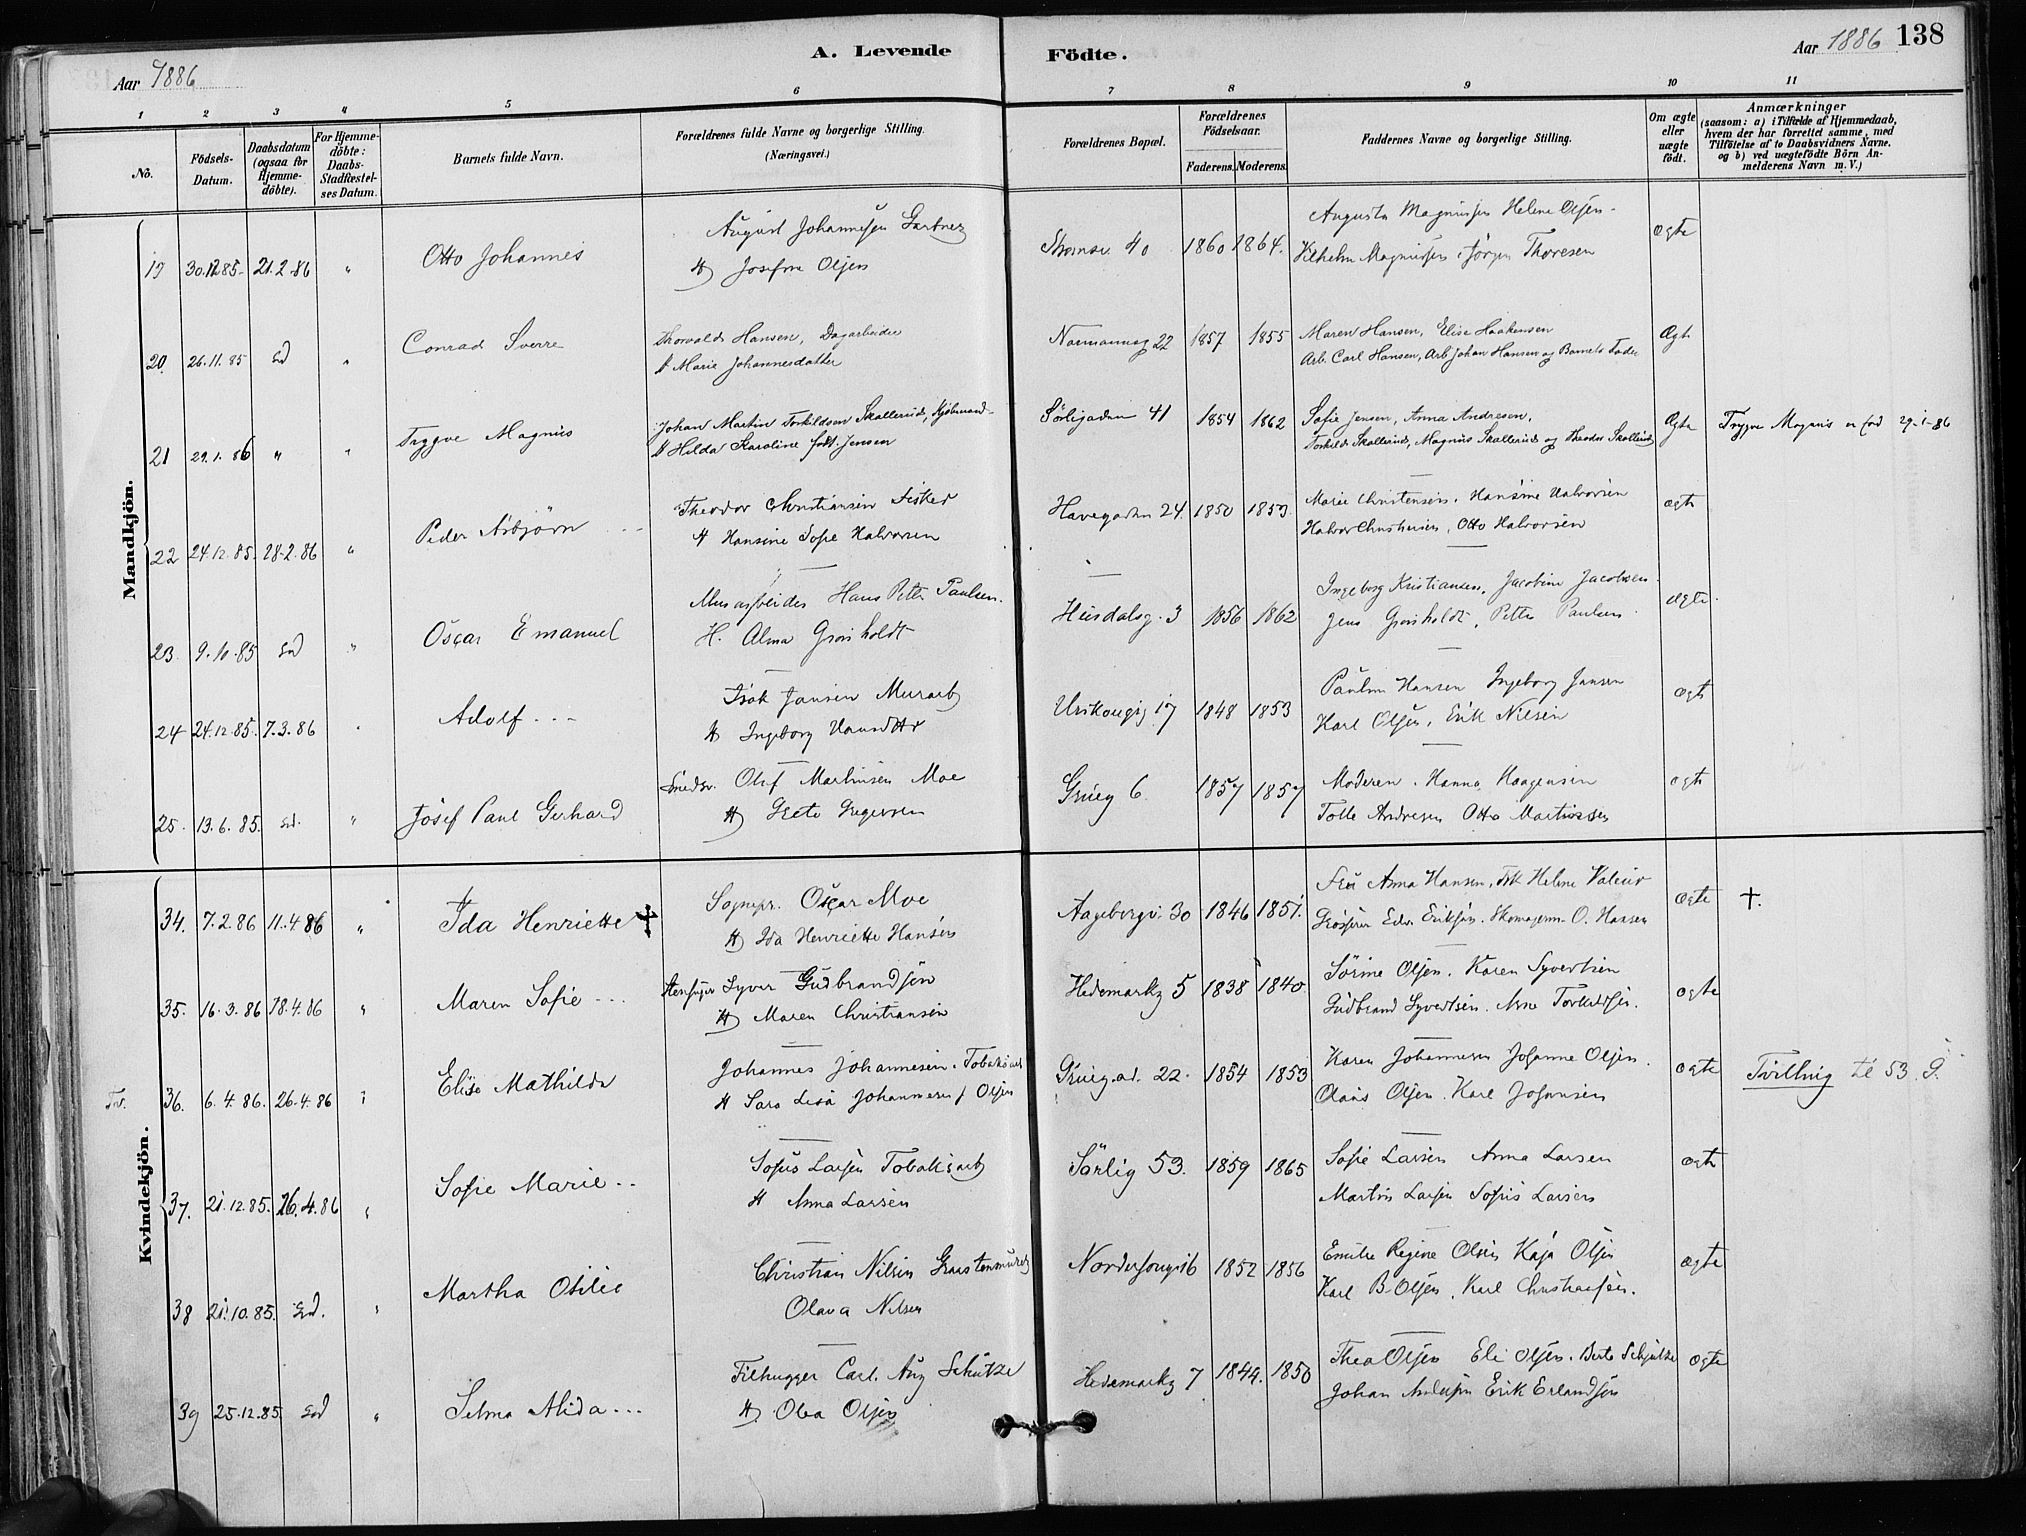 A. Levende Födte.
Aar 1886
Aar 1886 138
1 2 3 4 5 6 7 8 9 10 11
No.
Födsels-Datum.
Daabsdatum (ogsaa for Hjemme-döbte).
For Hjemme-döbte: Daabs-Stadfæstel-ses Datum.
Barnets fulde Navn.
Forældrenes fulde Navne og borgerlige Stilling. (Næringsvei.)
Forældrenes Bopæl.
Forældrenes Födselsaar.
Faderens. Moderens.
Faddernes Navne og borgerlige Stilling.
Om ægte eller uægte födt.
Anmærkninger (saasom: a) i Tilfælde af Hjemmedaab, hvem der har forrettet samme, med Tilföielse af to Daabsvidners Navne, og b) ved uægtefödte Börn An-melderens Navn m. V.)
Mandkjön.
19 30.12.85. 21.2.86 " Otto Johannes
August Johannesen Gartner
H Josefine Olsen
40 1860 1864.
Augusta Magnussen Helene Olsen
Vilhelm Magnussen Jörgen Thoresen
Ægte
20. 26.11.85 sd " Conrad Sverre
Thorvald Hansen, Dagarbeider
H Marie Johannesdatter
Normannsg 22 1857 1855
Maren Hansen, Elise Haakensen
Arb. Carl Hansen, Arb Johan Hansen og Barnets Fader
Ægte
21 29.1.86 " " Trygve Magnus
Johan Martin Torkildsen Skallerud, Kjöbmand
H Hilda Karoline födt Jensen
Sörligaden 41 1854 1862
Sofie Jensen, Anna Andresen,
Torkild Skallerud, Magnus Skallerud og Theodor Skallerud
Ægte
Trygve Magnus er föd 29-1-86
22 24.12.85. 28.2.86 " Peder Asbjörn
Theodor Christiansen Fisker
H Hansine Sofie Halvorsen
Havegaden 24. 1850 1853.
Marie Christensen. Hansine Halvorsen
Halvor Christensen, Otto Halvorsen
ægte
23. 9.10.85 sd " Oscar Emanuel
Murarbeider Hans Petter Paulsen.
H. Alma Grönholdt
Heisdalsg. 3 1856 1862
Ingeborg Kristiansen, Jacobine Jacobsen
Jens Grönholdt, Petter Paulsen
ægte
24 24.12.85. 7.3.86 Adolf
Isak Jansen Murarb
H Ingeborg
17 1848 1853
Pauline Hansen Ingeborg Jansen
Karl Olsen, Erik Nilsen
ægte
25. 13.6.85. sd. " Josef Paul Gerhard
Smedsv. Oluf Martinsen Moe
H Grete Gregersen
Grüg 6. 1857 1857
Moderen. Hanna Haagensen
Tolle Andresen Otto Martinsen
ægte
Kvindekjön.
34. 7.2.86 11.4.86 " Ida Henriette ✝
Sognepr. Oscar Moe
H Ida Henriette Hansen
Aagebergv. 30 1846 1851.
Fru Anna Hansen, Frk Helene Valeur
Grosserer Edv. Eriksen. Skomagerm. O. Hansen
ægte ✝.
35. 16.3.86 18.4.86 " Maren Sofie
Stenhugger Syver Gudbrandsen
H Maren Christiansen
Hedemarkg 5 1838 1840.
Sörine Olsen. Karen Syvertsen
Gudbrand Syvertsen. Arne Torkildsen.
ægte
Tv. 36. 6.4.86. 26.4.86 Elise Mathilde
Johannes Johannesen. Tobaksarb
H Sara Lisa Johannesen f Olsen
Grüegad. 22. 1854 1853
Karen Johannesen Johanne Olsen.
Olaus Olsen. Karl Johansen
ægte
Tvilling til 53. G.
37. 21.12.85. 26.4.86 Sofie Marie
Sofus Larsen Tobaksarb
H Anna Larsen
Sörlig 53. 1859 1865
Sofie Larsen Anna Larsen
Martin Larsen Sofus Larsen
ægte
38 21.10.85. sd. Martha Otilie
Christian Nilsen Graastensmurer
Olava Nilsen
16 1852 1856
Emilie Regine Olsen Kaja Olsen
Karl B. Olsen, Karl Christiansen.
ægte
39 25.12.85 sd " Selma Alida
Filhugger Carl. Aug Schutze
H. Olea Olsen
Hedemarkg 7 1844. 1850
Thea Olsen Eli Olsen. Berte Schjutze
Johan Andersen Erik Erlandsen
ægte